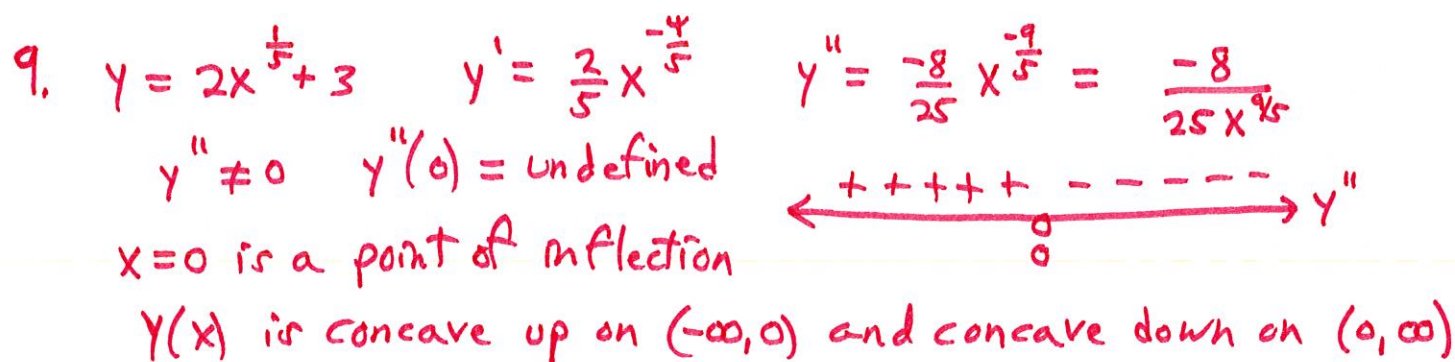 9. y = 2x^{1/5} + 3 y' = 2/5 x^{-4/5} y'' = -8/25 x^{-9/5} = -8/(25x^{9/5})
y'' ≠ 0 y''(0) = undefined
+ + + + + - - - - - - y''
0
0
x=0 is a point of inflection
y(x) is concave up on (-∞,0) and concave down on (0,∞)